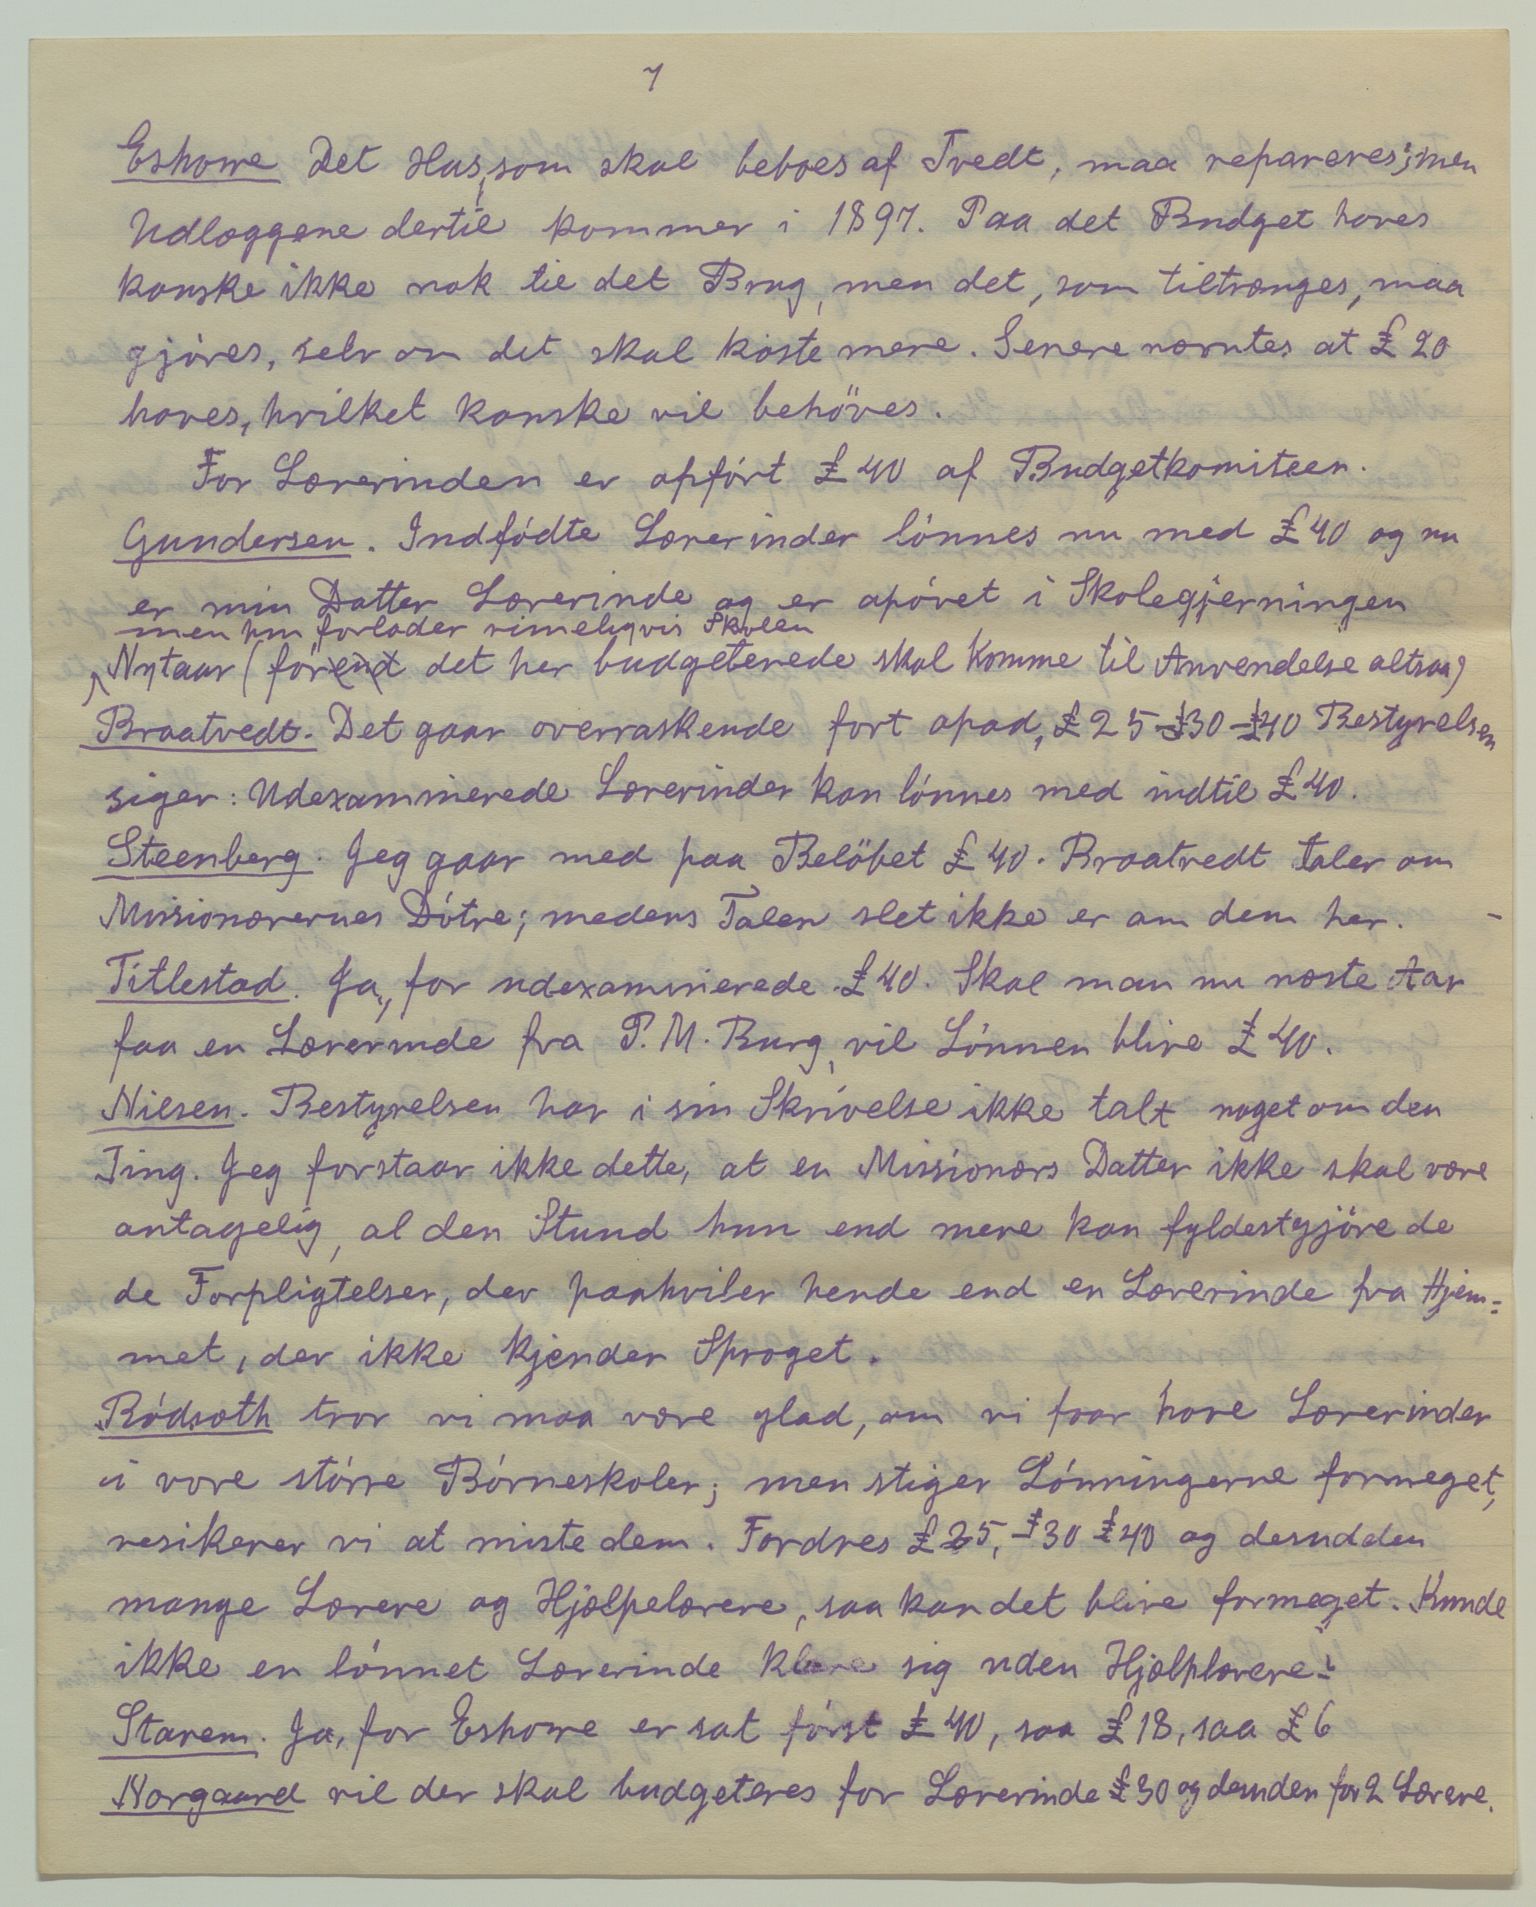 7
Eshowe Det Hus, som skal beboes af Tvedt, maa repareres; men
Udlæggene dertil kommer i 1897. Paa det Budget haves
kanske ikke nok til det Brug, men det, som tiltrænges, maa
gjóres, selv om det skal koste mere. Senere nævntes at £ 20
haves, hvilket kanske vil behöves.
For Lærerinden er opfórt £ 40 af Budgetkomiteen.
Gundersen. Indfódte Lærerinder lónnes nu med £ 40 og nu
er min Datter Lærerinde og er opóvet i Skolegjerningen
men hun forlader rimeligvis Skolen
Nytaar (fórend det her budgeterede skal komme til Anvendelse altsaa)
Braatvedt. Det gaar overraskende fort opad, £ 25 - £30 - £40 Bestyrelsen
siger: Udexaminerede Lærerinder kan lónnes med indtil £ 40.
Steenberg. Jeg gaar med paa Belöbet £ 40. Braatvedt taler om
Missionærernes Dótre; medens Talen slet ikke er om dem her.
Titlestad. Ja, for udexaminerede £ 40. Skal man nu næste Aar
faa en Lærerinde fra P. M. Burg, vil Lónnen blive £ 40.
Nilsen. Bestyrelsen har i sin Skrivelse ikke talt noget om den
Ting. Jeg forstaar ikke dette, at en Missionærs Datter ikke skal være
antagelig, al den Stund hun end mere kan fyldestgjöre de
de Forpligtelser, der paahviler hende end en Lærerinde fra Hjem=
met, der ikke kjender Sproget.
Ródsæth tror vi maa være glad, om vi faar have Lærerinder
i vore stórre Bórneskoler; men stiger Lónningerne formeget,
resikerer vi at miste dem. Fordres £ 25, £30 £40 og desudden
mange Lærere og Hjælpelærere, saa kan det blive formeget. Kunde
ikke en lónnet Lærerinde klare sig uden Hjælplærere?
Stavem. Ja, for Eshowe er sat fórst £ 40, saa £ 18, saa £ 6
Norgaard vil der skal budgeteres for Lærerinde £ 30 og desuden for 2 Lærere.